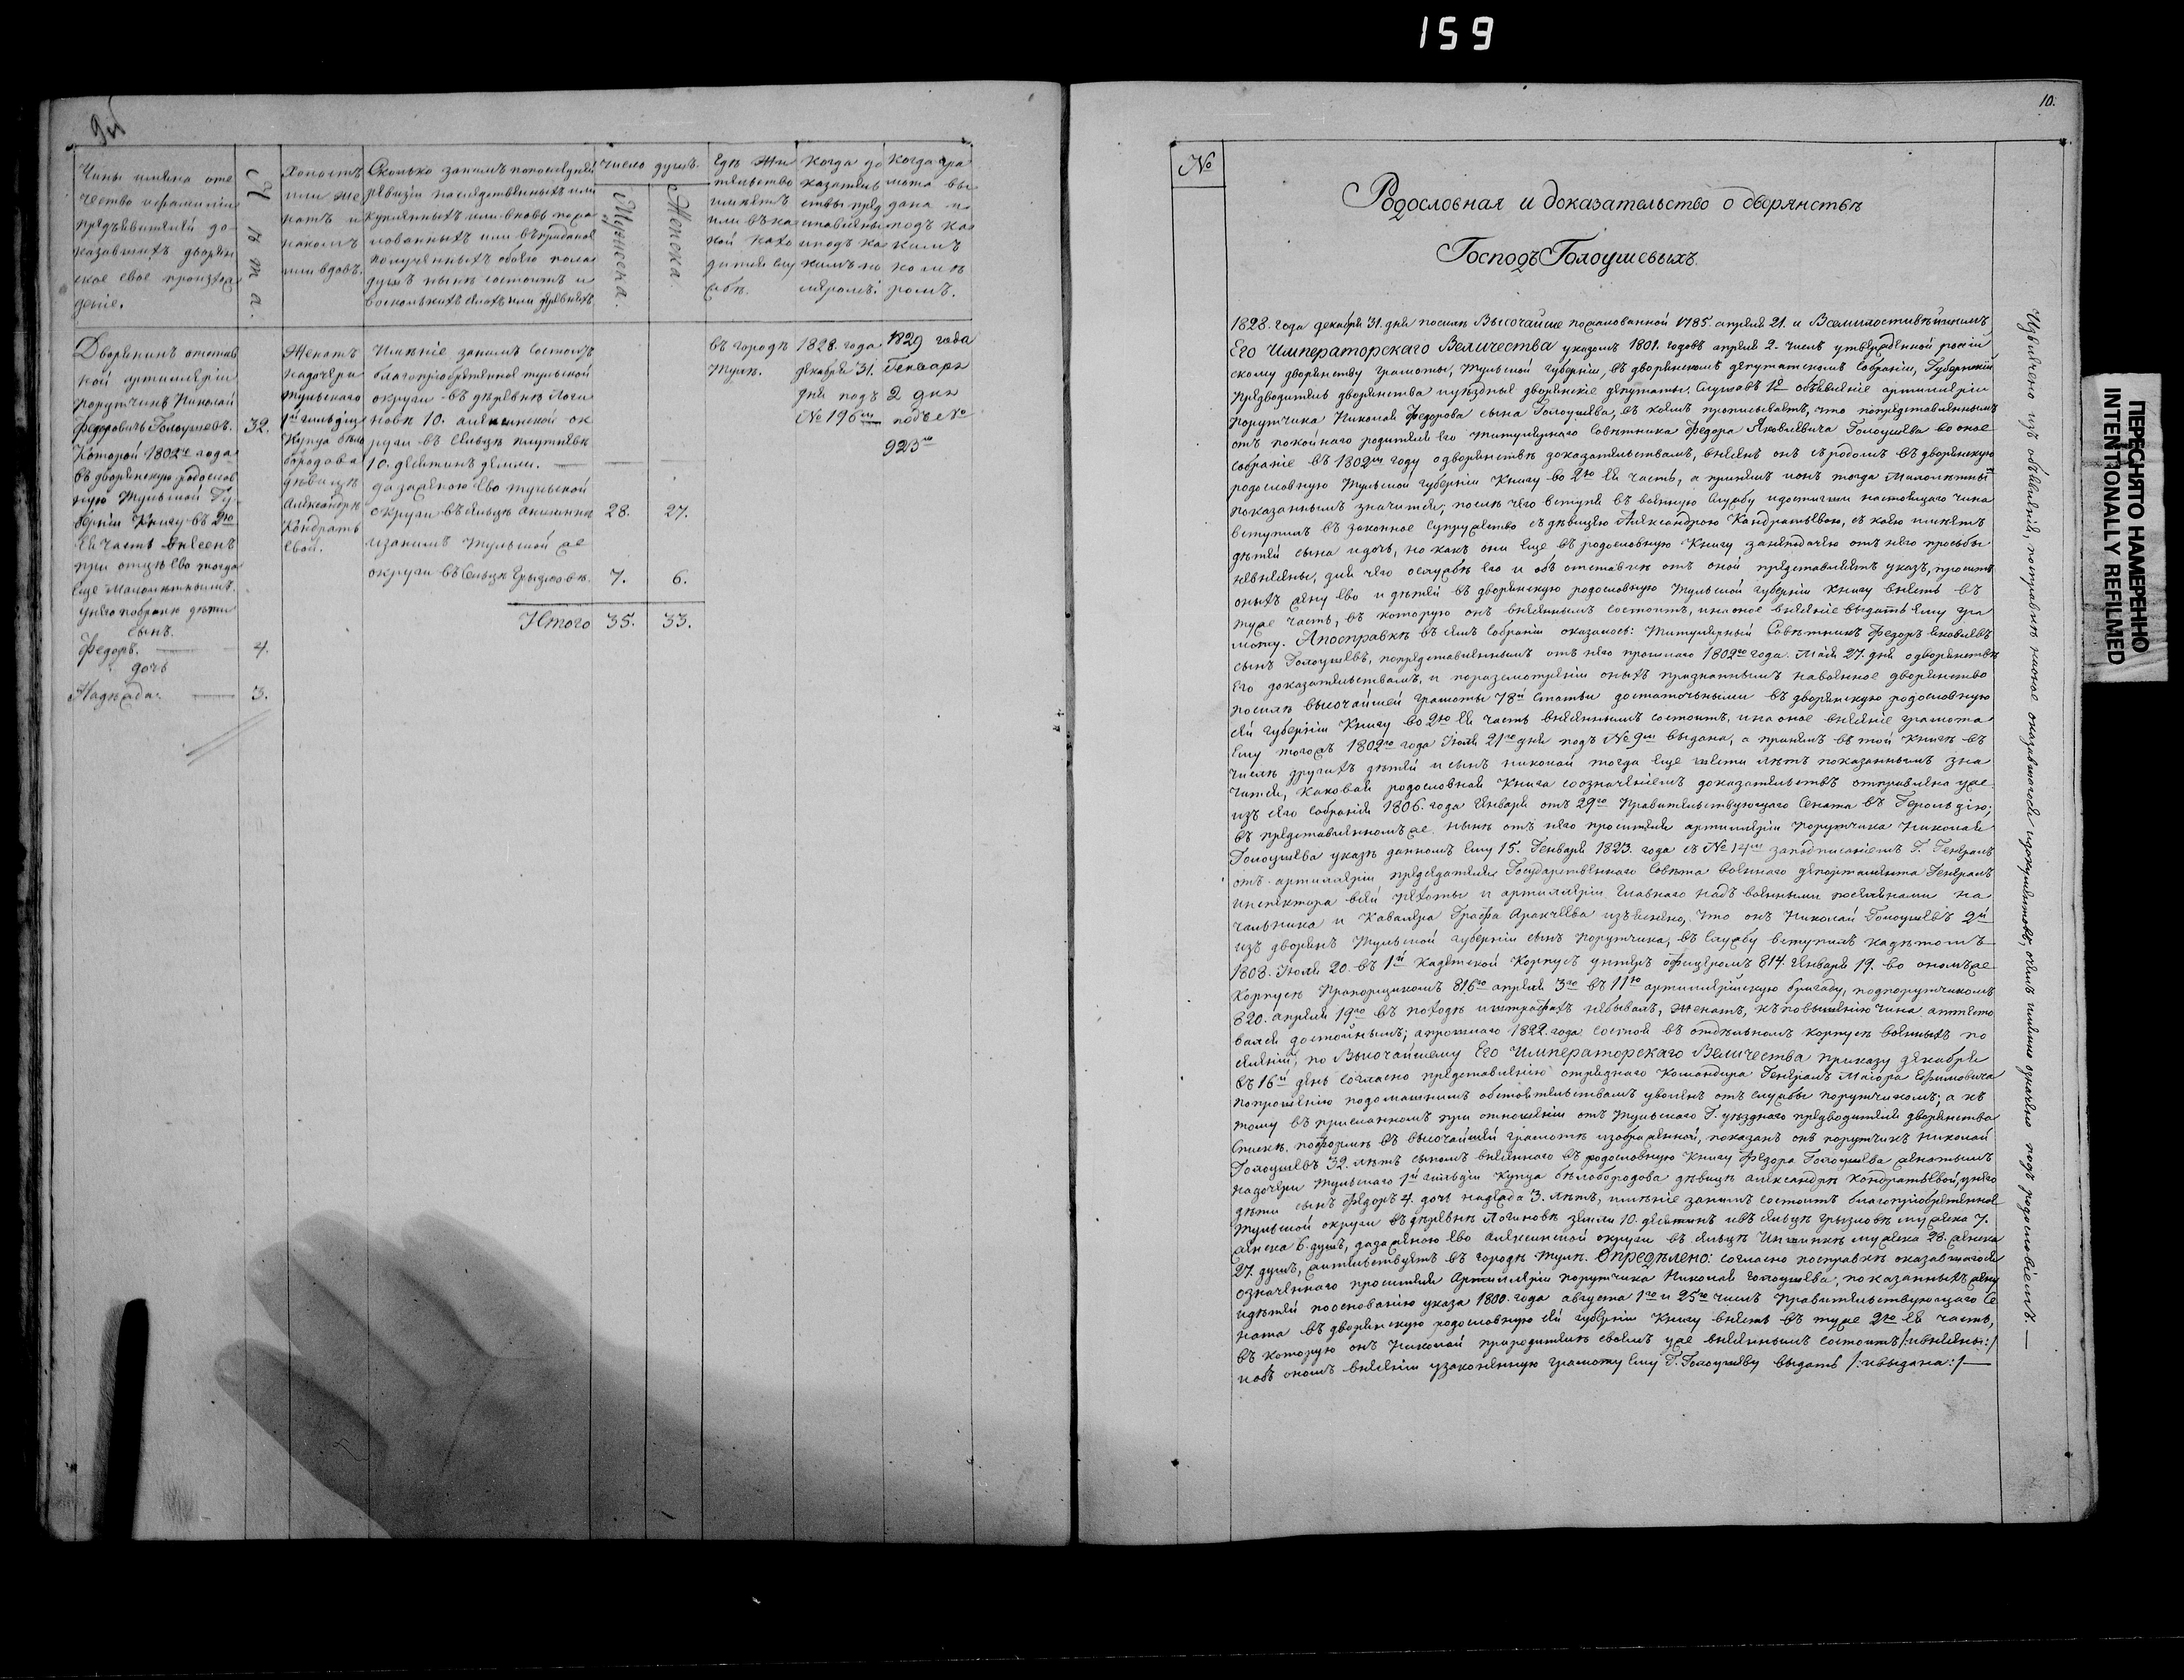 159
10.
Чины имяна оте
чество ифамилии
предъявителей до-
казавшихъ дворян
ское свое произхож
деніе.
Лѣта.
Холостъ
или же
натъ и
накомъ
или вдовъ.
Сколько занимъ попослѣдней
ревизіи наслѣдственныхъ или
купленныхъ или вновь пожа
лованныхъ или въ приданое
полученныхъ обоего пола
душъ нынѣ состоитъ и
восколькихъ селахъ или деревняхъ
число душъ.
Мужеска.
Женска.
Гдѣ жи
тельство
имѣетъ
или въ ка
кой нахо
дится слу
жбѣ.
Когда до
казатель
ствы пред
ставлены
иподъ ка
кимъ но
меромъ.
Когда гра
мота вы
дана и
подъ ка
кимъ
номе
ромъ.
Дворянинъ отстав
ной артиллеріи
порутчикъ Николай
Федоровичь Голоушевъ.
32.
Которой 1802го года
въ дворянскую родослов
ную Тульской Гу-
берніи Книгу въ 2ю
Ея часть внесенъ
при отцѣ ево тогда
еще Малолѣтнымъ.
унего побракѣ дѣти
сынъ
Федоръ. — 4.
дочь
Надежда. — 3.
Женатъ
надочери
тульскаго
1й гильдіи
Купца Бѣло
бородова
дѣвицѣ
Александрѣ
Кондрать
евой.
Имѣніе занимъ состоитъ
благопріобретенное тульской
округи въ деревнѣ Логи
новѣ 10. алексинской ок
руги въ сельцѣ
10. десятинъ земли. —
да заженою Ево тульской
округи въ сельцѣ 28. 27.
изанимъ тульской же
округи въ Сельцѣ Грызловѣ. 7. 6.
Итого 35. 33.
въ городѣ
Тулѣ.
1828. года
декабря 31.
дня подъ
№ 196м
1829 года
Генваря
2 дня
подъ №
923м
№
Родословная и доказательство о дворянствѣ
Господъ Голоушевыхъ.
1828. года декабря 31. дня посилѣ Высочайше пожалованной 1785. апреля 21. и Всемилостивѣйшимъ
Его Императорскаго Величества указомъ 1801. годовъ апреля 2. числъ утвержденной россій
скому дворянству грамоты, Тульской губерніи, въ дворянскомъ депутатскомъ Собраніи, Губернскій
Предводитель дворянства иуѣздные дворянскіе депутаты. Слушавъ 1е объявленіе артиллеріи
порутчика Николая Федорова сына Голоушева, въ коемъ прописываетъ, что попредставленнымъ
отъ покойнаго родителя Его титулярнаго Совѣтника Федора Яковлевича Голоушева во оное
собраніе въ 1802м году одворянствѣ доказательствамъ, внесенъ онъ съ родомъ въ дворянскую
родословную Тульской губерніи Книгу во 2ю Ея часть, а принемъ ионъ тогда Малолѣтный
показаннымъ значится, послѣ чего вступя въ военную службу идостигши настоящаго чина
вступилъ въ законное супружество съ дѣвицею Александрою Кондратьевою, съ коею имѣетъ
дѣтей сына идочь, но какъ они еще въ родословную Книгу занеподачею отъ него просьбы
невнесены, для чего ослужбѣ Его и объ отставкѣ отъ оной представляетъ указъ, проситъ
оныхъ жену Ево и дѣтей въ дворянскую родословную Тульской губерніи Книгу внесть въ
туже часть, въ которую онъ внесеннымъ состоитъ, инаоное внесеніе выдать Ему гра
моту. Апосправкѣ въ семъ Собраніи оказалось: Титулярный Совѣтникъ Федоръ Яковлевъ
сынъ Голоушевъ, попредставленнымъ отъ него прошлаго 1802го года. Мая 27. дня одворянствѣ
Его доказательствамъ, и поразсмотреніи оныхъ признаннымъ навоенное дворянство
посилѣ высочайшей грамоты 78й Статьи достаточными въ дворянскую родословную
сей губерніи Книгу во 2ю Ея часть внесеннымъ состоитъ, ина оное внесеніе грамота
Ему тогожъ 1802го года Июля 21го дня подъ №9м выдана, а принемъ въ той книгѣ въ
числѣ другихъ дѣтей и сынъ николай тогда Еще шести лѣтъ показаннымъ зна
чится, каковая родословная Книга созначеніемъ доказательствъ отправлена уже
изъ сего Собранія 1806. года Января отъ 29го Правительствующаго Сената въ Герольдію;
въ представленномъ же нынѣ отъ него просителя артиллеріи Порутчика Николая
Голоушева указѣ данномъ Ему 15. Генваря 1823. года съ №14м заподписаніемъ Г. Генерала
отъ артиллеріи председателя Государственнаго Совѣта военнаго департамента Генералъ
Инспектора всей пѣхоты и артиллеріи Главнаго надъ военными поселеніями на
чальника и Кавалера Графа Аракчеева изъяснено, что онъ Николай Голоушевъ 2й
изъ дворянъ Тульской губерніи сынъ порутчика, въ службу вступилъ кадетомъ
1808. Июля 20. въ 1й Кадетской Корпусъ унтеръ офицеромъ 814. Января 19. во ономъ же
Корпусѣ Прапорщикомъ 816го апреля 3го въ 11ю артиллерійскую бригаду, подпорутчикомъ
820. апреля 19го въ походѣ и штрафахъ небывалъ, женатъ, къ повышенію чина аттесто
вался достойнымъ; апрошлаго 1822. года состоя въ отдельномъ корпусѣ военныхъ по
селеній, по Высочайшему Его Императорскаго Величества приказу декабря
въ 16й день согласно представленію отряднаго Командира Генералъ Маіора Ефимовича
попрошенію подомашнимъ обстоятельствамъ уволенъ отъ службы порутчикомъ; а къ
тому въ присланномъ при отношеніи отъ Тульскаго Г. уѣзднаго предводителя дворянства
Спискѣ, поформѣ въ высочайшей грамотѣ изображенной, показанъ онъ порутчикъ Николай
Голоушевъ 32. лѣтъ сыномъ внесеннаго въ родословную Книгу Федора Голоушева женатымъ
надочери Тульскаго 1й гильдіи Купца бѣлобородова дѣвицѣ александрѣ Кондратьевой, унего
дѣти сынъ Федоръ 4. дочь надежда 3. лѣтъ, имѣніе занимъ состоитъ благопріобретенное
Тульской округи въ деревнѣ Логиновѣ земли 10. десятинъ ивъ сельцѣ Грызловѣ мужеска 7.
женска 6. душъ, дазаженою Ево алексинской округи въ сельцѣ мужеска 28. женска
27. душъ, жительствуетъ въ городѣ тулѣ. Опредѣлено: согласно посправкѣ оказавшагося
означеннаго просителя Артиллеріи порутчика Николая Голоушева, показанныхъ жену
идѣтей пооснованію указа 1800. года августа 1го и 25го числъ Правительствующаго Се
ната въ дворянскую родословную сей губерніи Книгу внесть въ туже 2ю Ея часть,
въ которую онъ Николай породителѣ своемъ уже внесеннымъ состоитъ /:ивнесены:/
иобъ ономъ внесеніи узаконенную грамоту Ему Г. Голоушеву выдать /:ивыдана:/ —
Извлечено изъ объявленія, посправкѣ наоное оказавшагося идокументовъ, очемъ имянно означено подъ родословіемъ. —
ПЕРЕСНЯТО НАМЕРЕННО
INTENTIONALLY REFILMED